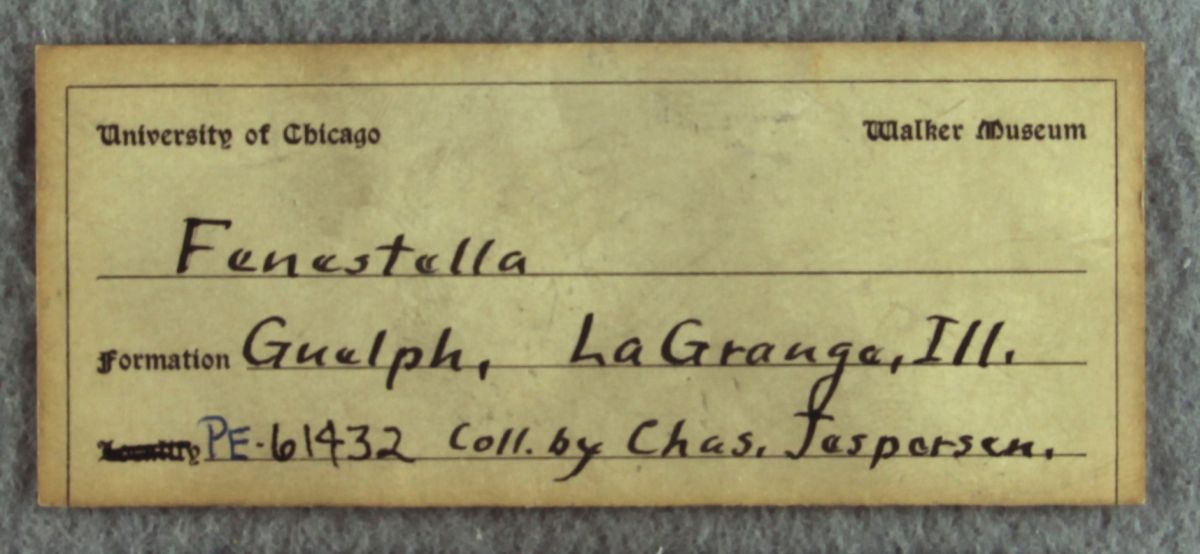 University of Chicago Walker Museum
Fenestella
Formation Guelph, LaGrange, Ill.
Locality PE-61432 Coll. by Chas. Jespersen.